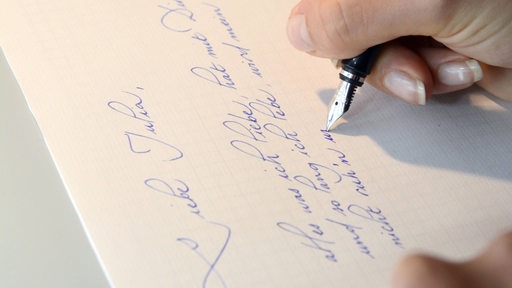 Liebe Julia,
alles was ich liebe, hat mit Di
und so lang ich lebe, wird mein
nicht ruh'n